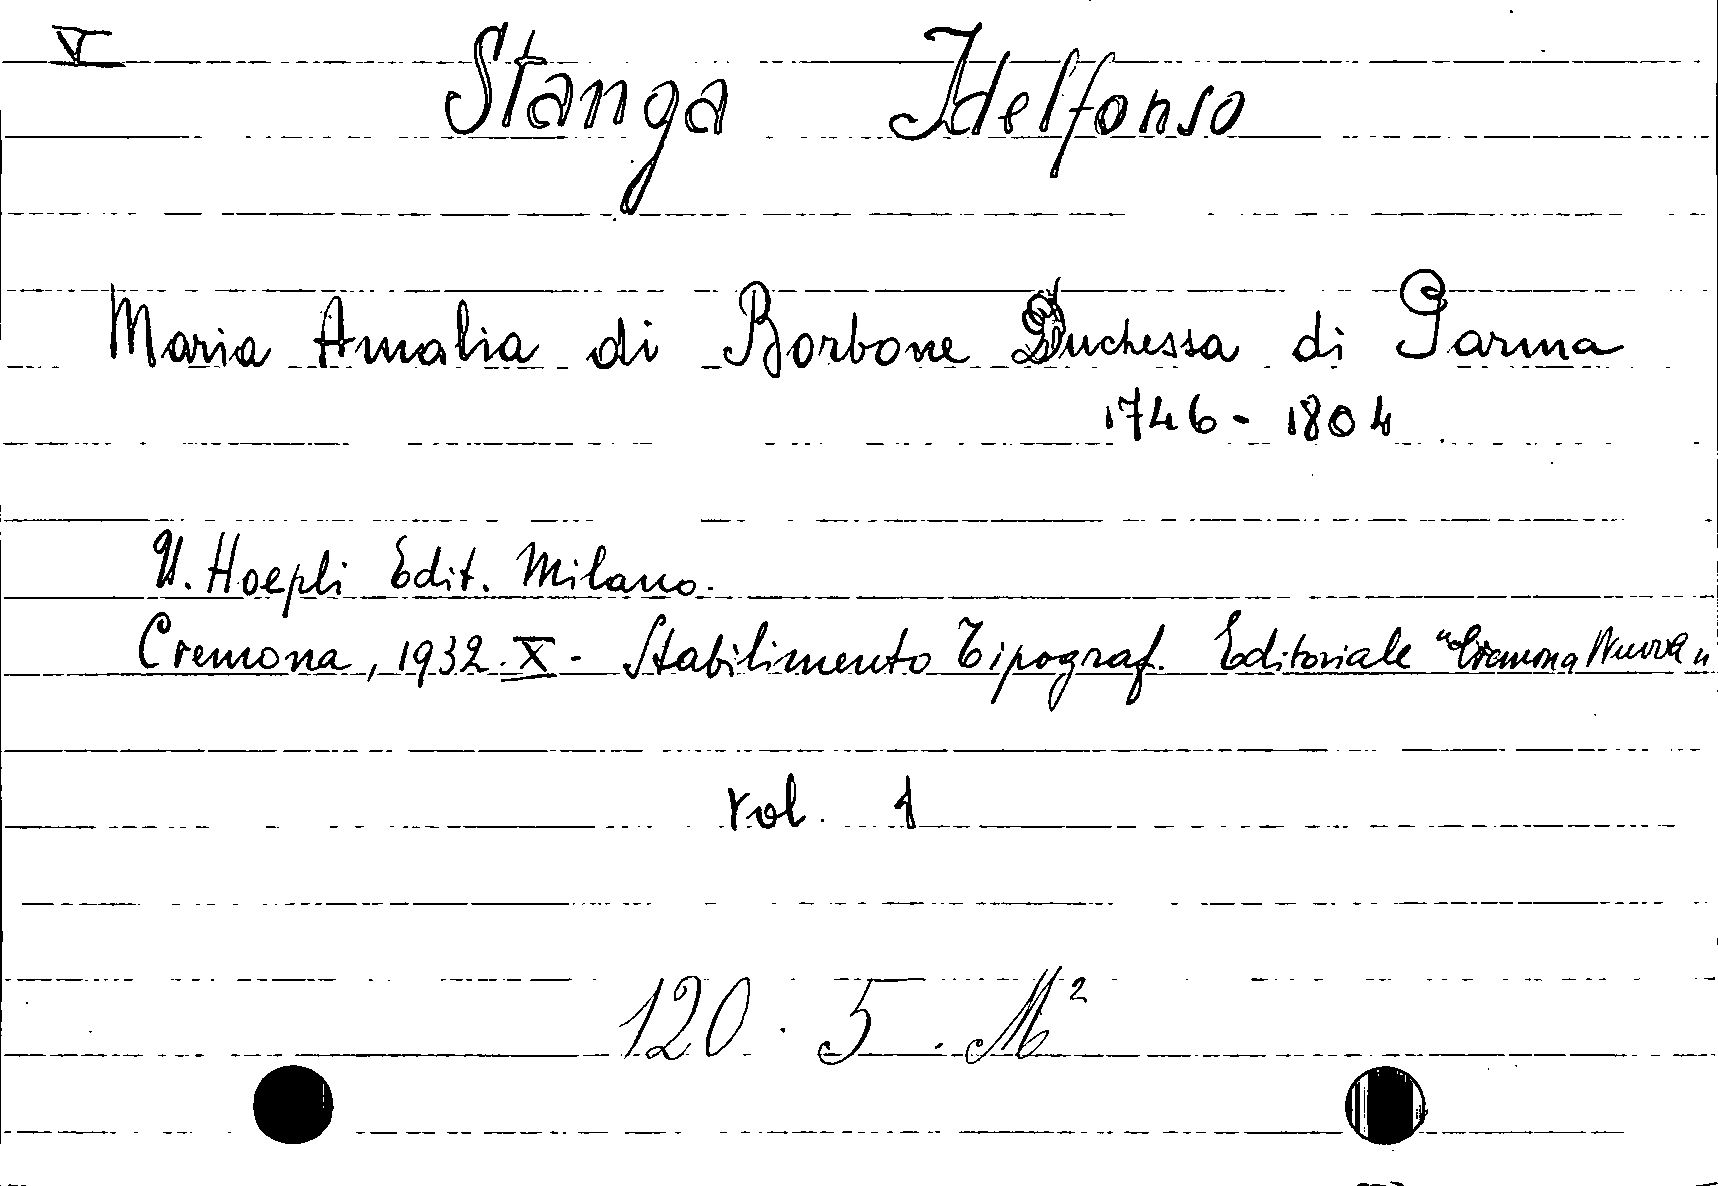 V
Stanga Idelfonso
Maria Amalia di Borbone Duchessa di Parma
1746 - 1804
U. Hoepli Edit. Milano.
Cremona, 1932. X - Stabilimento Tipograf. Editoriale "Cremona Nuova"
vol. 1
120. 5. M²